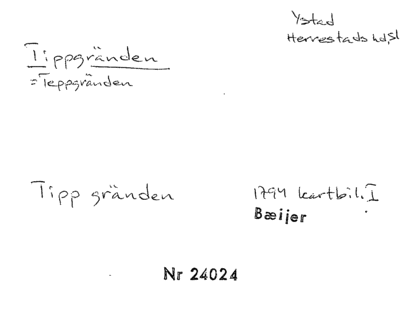 Ystad
Herrestads hd, Sk
Tippgränden
= Teppgränden
Tippgränden 1794 kartbil. I
Bæijer
Nr 24024